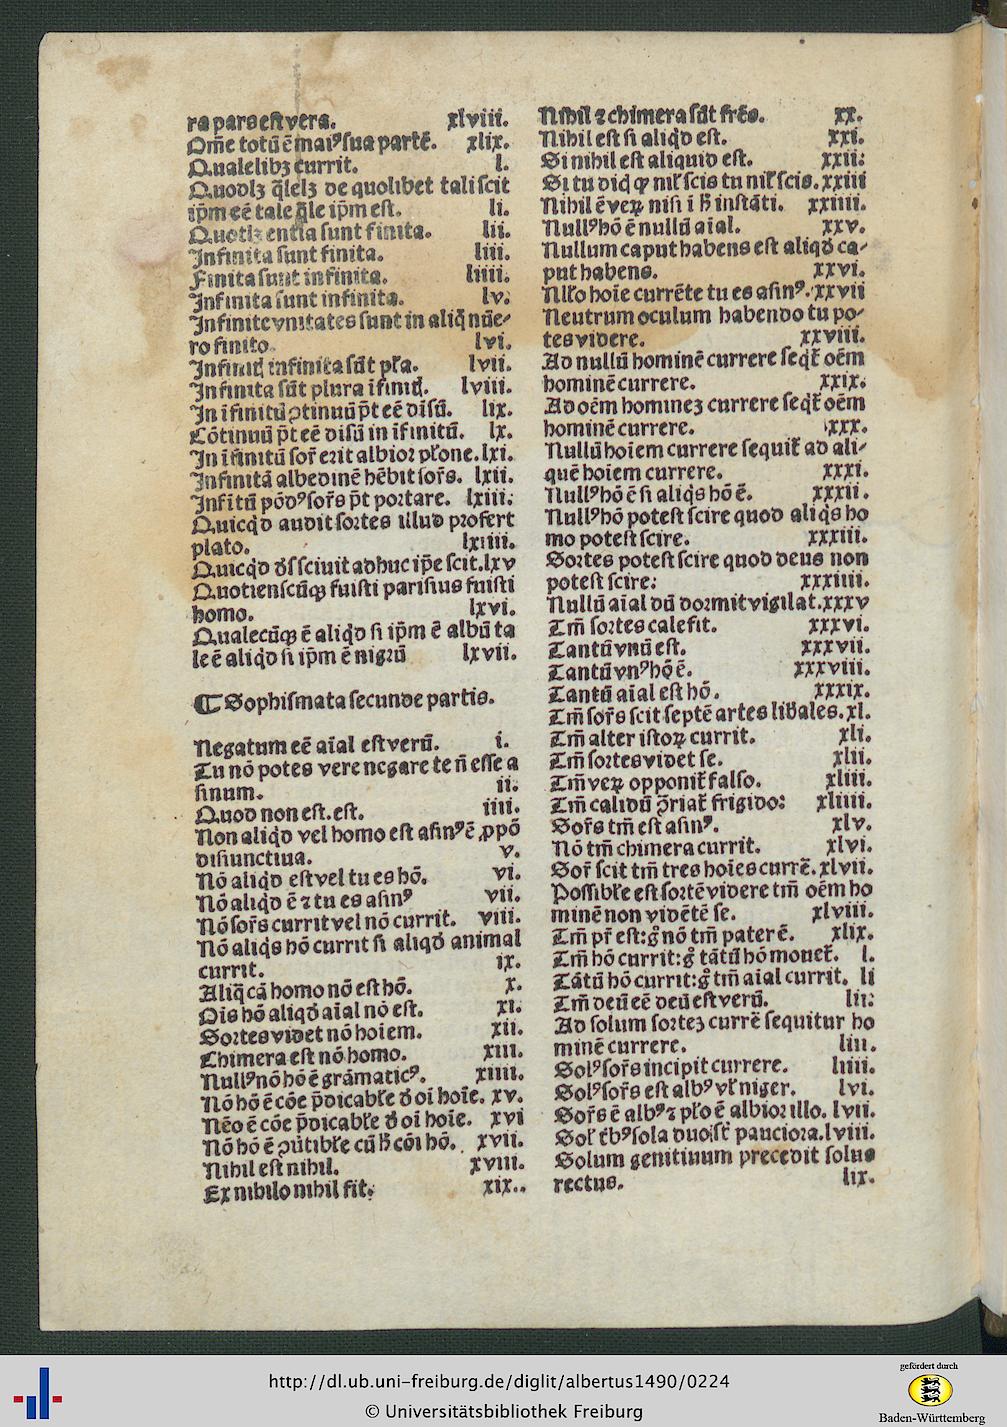 ra pars est vera. xlviii.
Om̄e totū ē maiꝰ sua partē. xlix.
Qualelibꝫ currit. l.
Quodlꝫ q̄lelꝫ de quolibet tali scit
ip̄m eē tale q̄le ip̄m est. li.
Quotlꝫ entia sunt finita. lii.
Infinita sunt finita. liii.
Finita sunt infinita. liiii.
Infinita sunt infinita. lv.
Infinite vnitates sunt in aliq̄ nūe-
ro finito. lvi.
infinita sūt pl̄a. lvii.
Infinita sūt plura lviii.
In īfinitū ꝯtinuū p̄t eē diſū. lix.
Cōtinuū p̄t eē diſū in īfinitū. lx.
In īfinitū sor̄ erit albior pl̄one. lxi.
Infinitā albedinē hēbit sor̄s. lxii.
Infītū pōdꝰ sor̄s p̄t portare. lxiii.
Quicq̄d audit sortes illud profert
plato. lxiiii.
Quicq̄d sciuit adhuc ip̄e scit. lxv
Quotienscūqꝫ fuisti parisius fuisti
homo. lxvi.
Qualecūqꝫ ē aliq̄d si ip̄m ē albū ta
le ē aliq̄d si ip̄m ē nigrū lxvii.
¶ Sophismata secunde partis.
Negatum eē aīal est verū. i.
Tu nō potes vere negare te n̄ esse a
sinum. ii.
Quod non est. est. iiii.
Non aliq̄d vel homo est asinꝰ ē ꝓpō
disiunctiua. v.
Nō aliq̄d est vel tu es hō. vi.
Nō aliq̄d ē ⁊ tu es asinꝰ vii.
Nō sor̄s currit vel nō currit. viii.
Nō aliq̄s hō currit si aliq̄d animal
currit. ix.
Aliq̄ cā homo nō est hō. x.
Ois hō aliq̄d aīal nō est. xi.
Sortes videt nō hoīem. xii.
Chimera est nō homo. xiii.
Nullꝰ nō hō ē grāmaticꝰ. xiiii.
Nō hō ē cōe p̄dicabl̄e đ oī hoīe. xv.
Nēo ē cōe p̄dicabl̄e đ oī hoīe. xvi
Nō hō ē cū cōi hō. xvii.
Nihil est nihil. xviii.
Ex nihilo nihil fit. xix.
Nihil ⁊ chimera sūt fr̄es. xx.
Nihil est si aliq̄d est. xxi.
Si nihil est aliquid est. xxii.
Si tu dic̄ ꝙ nil̄ scis tu nil̄ scis. xxiii
Nihil ē veꝝ nisi ī instāti. xxiiii.
Nullꝰ hō ē nullū aīal. xxv.
Nullum caput habens est aliq̄d ca-
put habens. xxvi.
Nl̄o hoīe currēte tu es asinꝰ. xxvii
Neutrum oculum habendo tu po-
tes videre. xxviii.
Ad nullū hominē currere seqt̄ oēm
hominē currere. xxix.
Ad oēm homineꝫ currere seqt̄ oēm
hominē currere. xxx.
Nullū hoīem currere sequit̄ ad ali-
quē hoīem currere. xxxi.
Nullꝰ hō ē si aliq̄s hō ē. xxxii.
Nullꝰ hō potest scire quod aliq̄s ho
mo potest scire. xxxiii.
Sortes potest scire quod deus non
potest scire. xxxiiii.
Nullū aīal dū dormit vigilat. xxxv
Tm̄ sortes calefit. xxxvi.
Tantū vnū est. xxxvii.
Tantū vnꝰ hō ē. xxxviii.
Tantū aīal est hō. xxxix.
Tm̄ sor̄s scit septē artes lib̄ales. xl.
Tm̄ alter istoꝝ currit. xli.
Tm̄ sortes videt se. xlii.
Tm̄ veꝝ opponit̄ falso. xliii.
Tm̄ calidū ꝯ̄riat̄ frigido. xliiii.
Sor̄s tm̄ est asinꝰ. xlv.
Nō tm̄ chimera currit. xlvi.
Sor̄ scit tm̄ tres hoīes currē. xlvii.
Possibl̄e est sortē videre tm̄ oēm ho
minē non vidētē se. xlviii.
Tm̄ pr̄ est: gͦ nō tm̄ pater ē. xlix.
Tm̄ hō currit: gͦ tātū hō mouet̄. l.
Tātū hō currit: gͦ tm̄ aīal currit. li
Tm̄ deū eē deū est verū. lii.
Ad solum sorteꝫ currē sequitur ho
minē currere. liii.
Solꝰ sor̄s incipit currere. liiii.
Solꝰ sor̄s est albꝰ vl̄ niger. lvi.
Sor̄s ē albꝰ ⁊ pl̄o ē albior illo. lvii.
sola pauciora. lviii.
Solum genitiuum precedit solus
rectus. lix.
http://dl.ub.uni-freiburg.de/diglit/albertus1490/0224
© Universitätsbibliothek Freiburg
gefördert durch
Baden-Württemberg